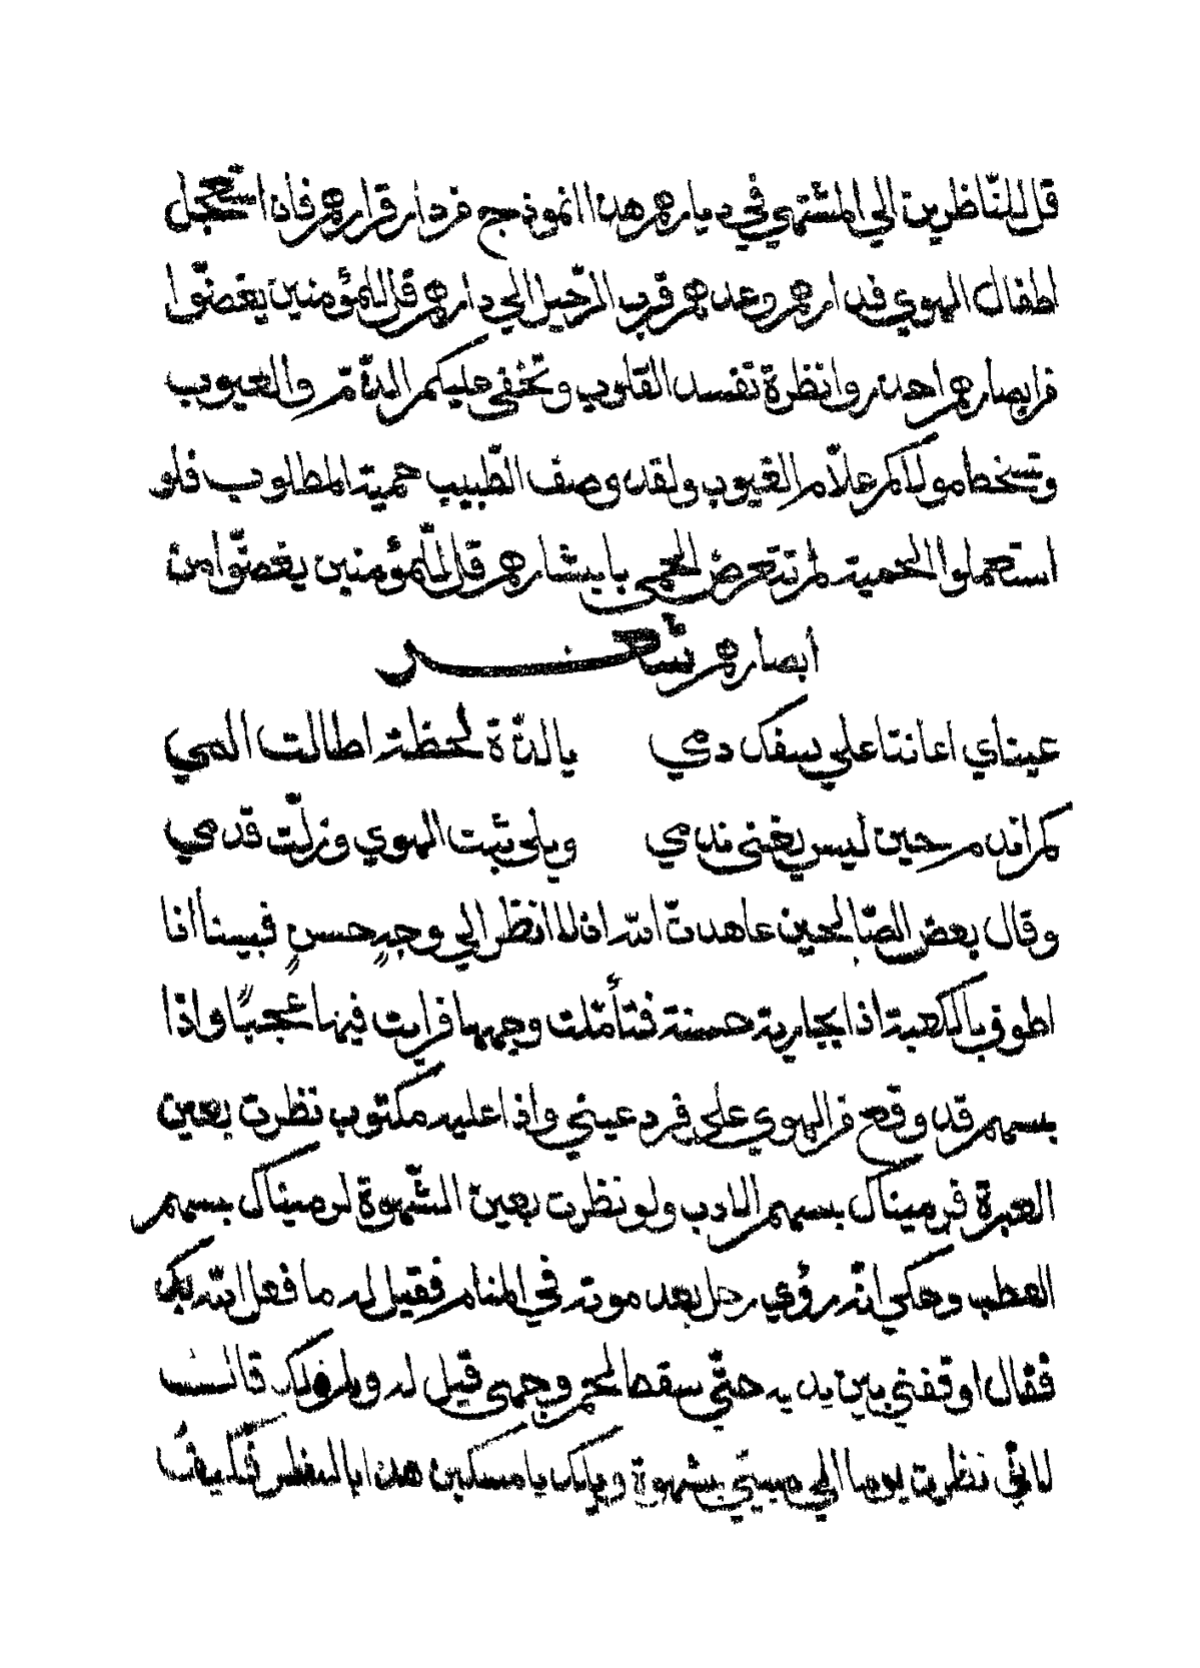 قل للنّاظرين الي المشتهي في ديارهم هذا انموذج من دار قرارهم فان استعجل
اطفال الهوي فدارهم وعدهم قرب الرّحيل الي دارهم قل للمؤمنين يغضّوا
من ابصارهم احذروا نظرة تفسد القلوب وتخفى عليكم الذّمّ والعيوب
وتسخط مولاكم علّام الغيوب ولقد وصف الطّبيب حمية للمطلوب فلو
استعملوا الحمية لم تتعرض الحمى بابشارهم قل للمؤمنين يغضّوا من
أبصارهم شعر
عيناي اعانتا على سفك دمي يا لذّة لحظة اطالت المي
كم اندم حين ليس يغنى ندمي ويلى ثبت الهوي وزلّت قدمي
وقال بعض الصّالحين عاهدت الله ان لا انظر الي وجهٍ حسنٍ فبينا أنا
اطوف بالكعبة اذا بجارية حسنة فتأمّلت وجهها فرايت فيها عجبًا واذا
بسهم قد وقع من الهوي على فرد عيني واذا عليه مكتوب نظرت بعين
العبرة فرميناك بسهم الادب ولو نظرت بعين الشّهوة لرميناك بسهم
العطب وحكي انّه رؤي رجل بعد موته في المنام فقيل له ما فعل الله بك
فقال اوقفني بين يديه حتّي سقط لحم وجهى قيل له ولم ذلك قال
لانّي نظرت يوما الي صبيّ بشهوة ويلك يا مسكين هذا بالنظر فكيف